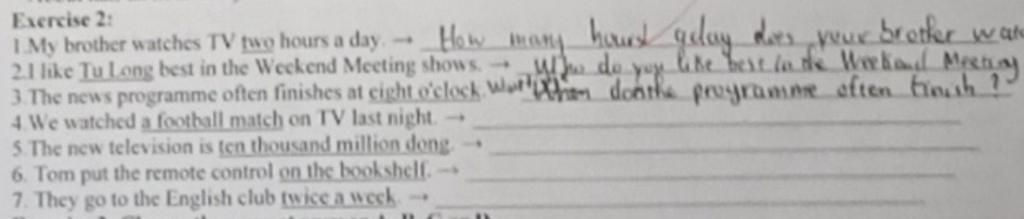 Exercise 2:
1.My brother watches TV two hours a day. → How many hours aday does your brother wat
2.I like Tu Long best in the Weekend Meeting shows. → Who do you like best in the Weekend Meeting
3.The news programme often finishes at eight o'clock. When do the programme often finish ?
4.We watched a football match on TV last night. →
5.The new television is ten thousand million dong. →
6. Tom put the remote control on the bookshelf. →
7. They go to the English club twice a week. →